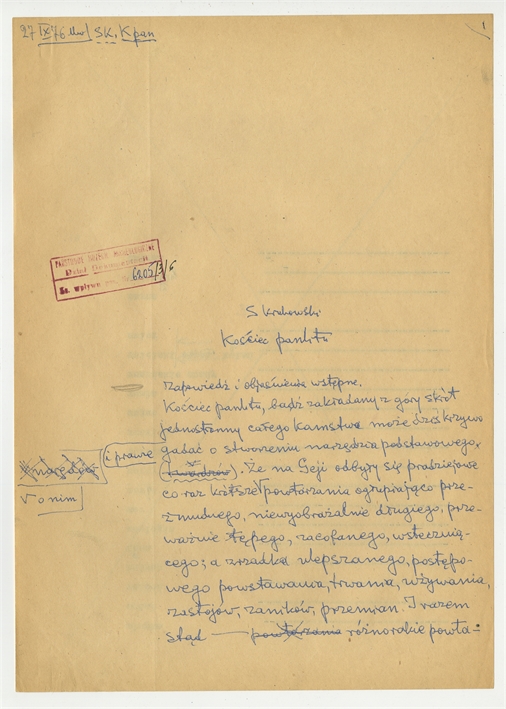 27 IX 76 SK, Kpan
1
6802/3/6
S Krakowski
Kościec panlitu
Zapowiedź i objaśnienia wstępne.
Kościec panlitu, bądź zakładany z góry skrót
jednostronny całego kamstwa może dziś krzywo
i prawie
gadać o stworzeniu narzędzia podstawowego,
(twardzów). Że na Geji odbyły się pradziejowe
v o nim
co raz krótsze powtórzenia ogrupiająco prze-
żmudnego, niewyobrażalnie długiego, prze-
ważnie tępego, zacofanego, wsteczują-
cego; a zrzadka ulepszanego, postępo-
wego powstawania, trwania, używania,
zastojów, zaników, przemian. I razem
stąd — powtórzenia różnorakie powta-